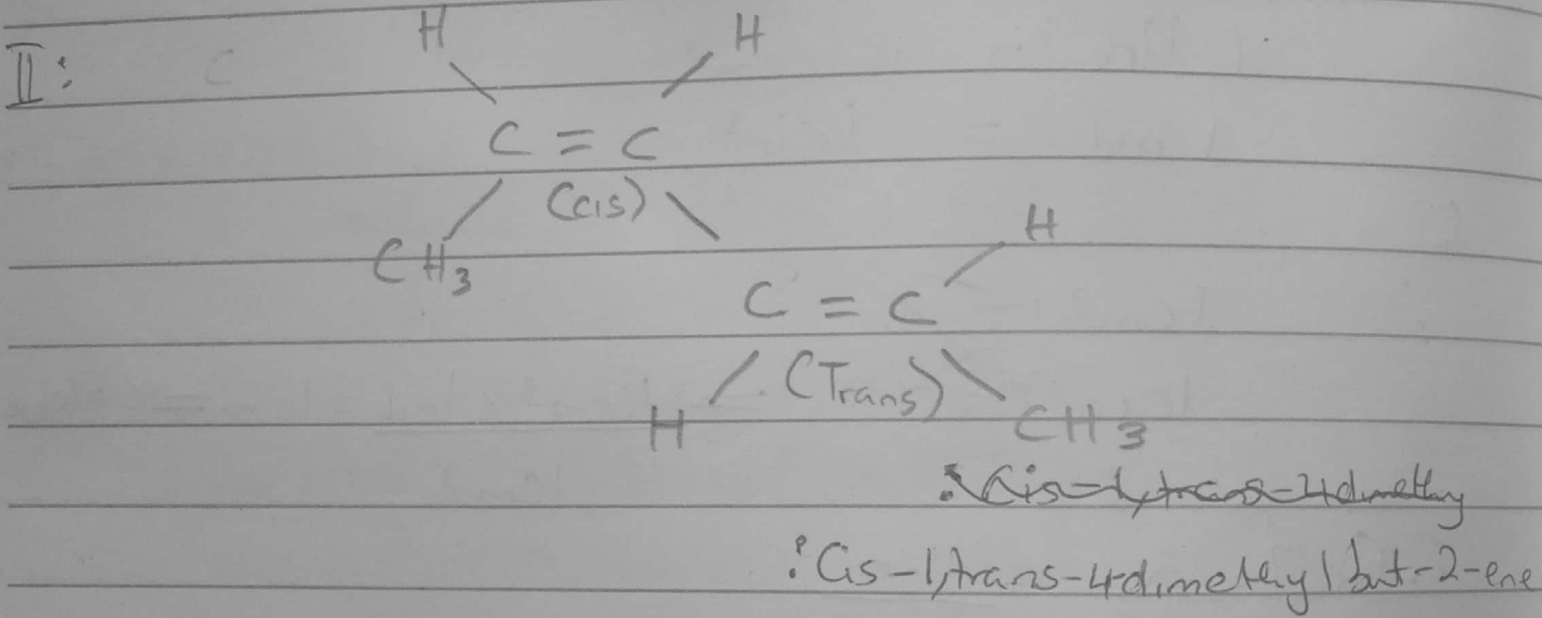 II:
H H
C = C
(cis)
CH3
H
C = C
(Trans)
H
CH3
: Cis-1,trans-4dimethy
: Cis-1,trans-4-dimethyl but-2-ene